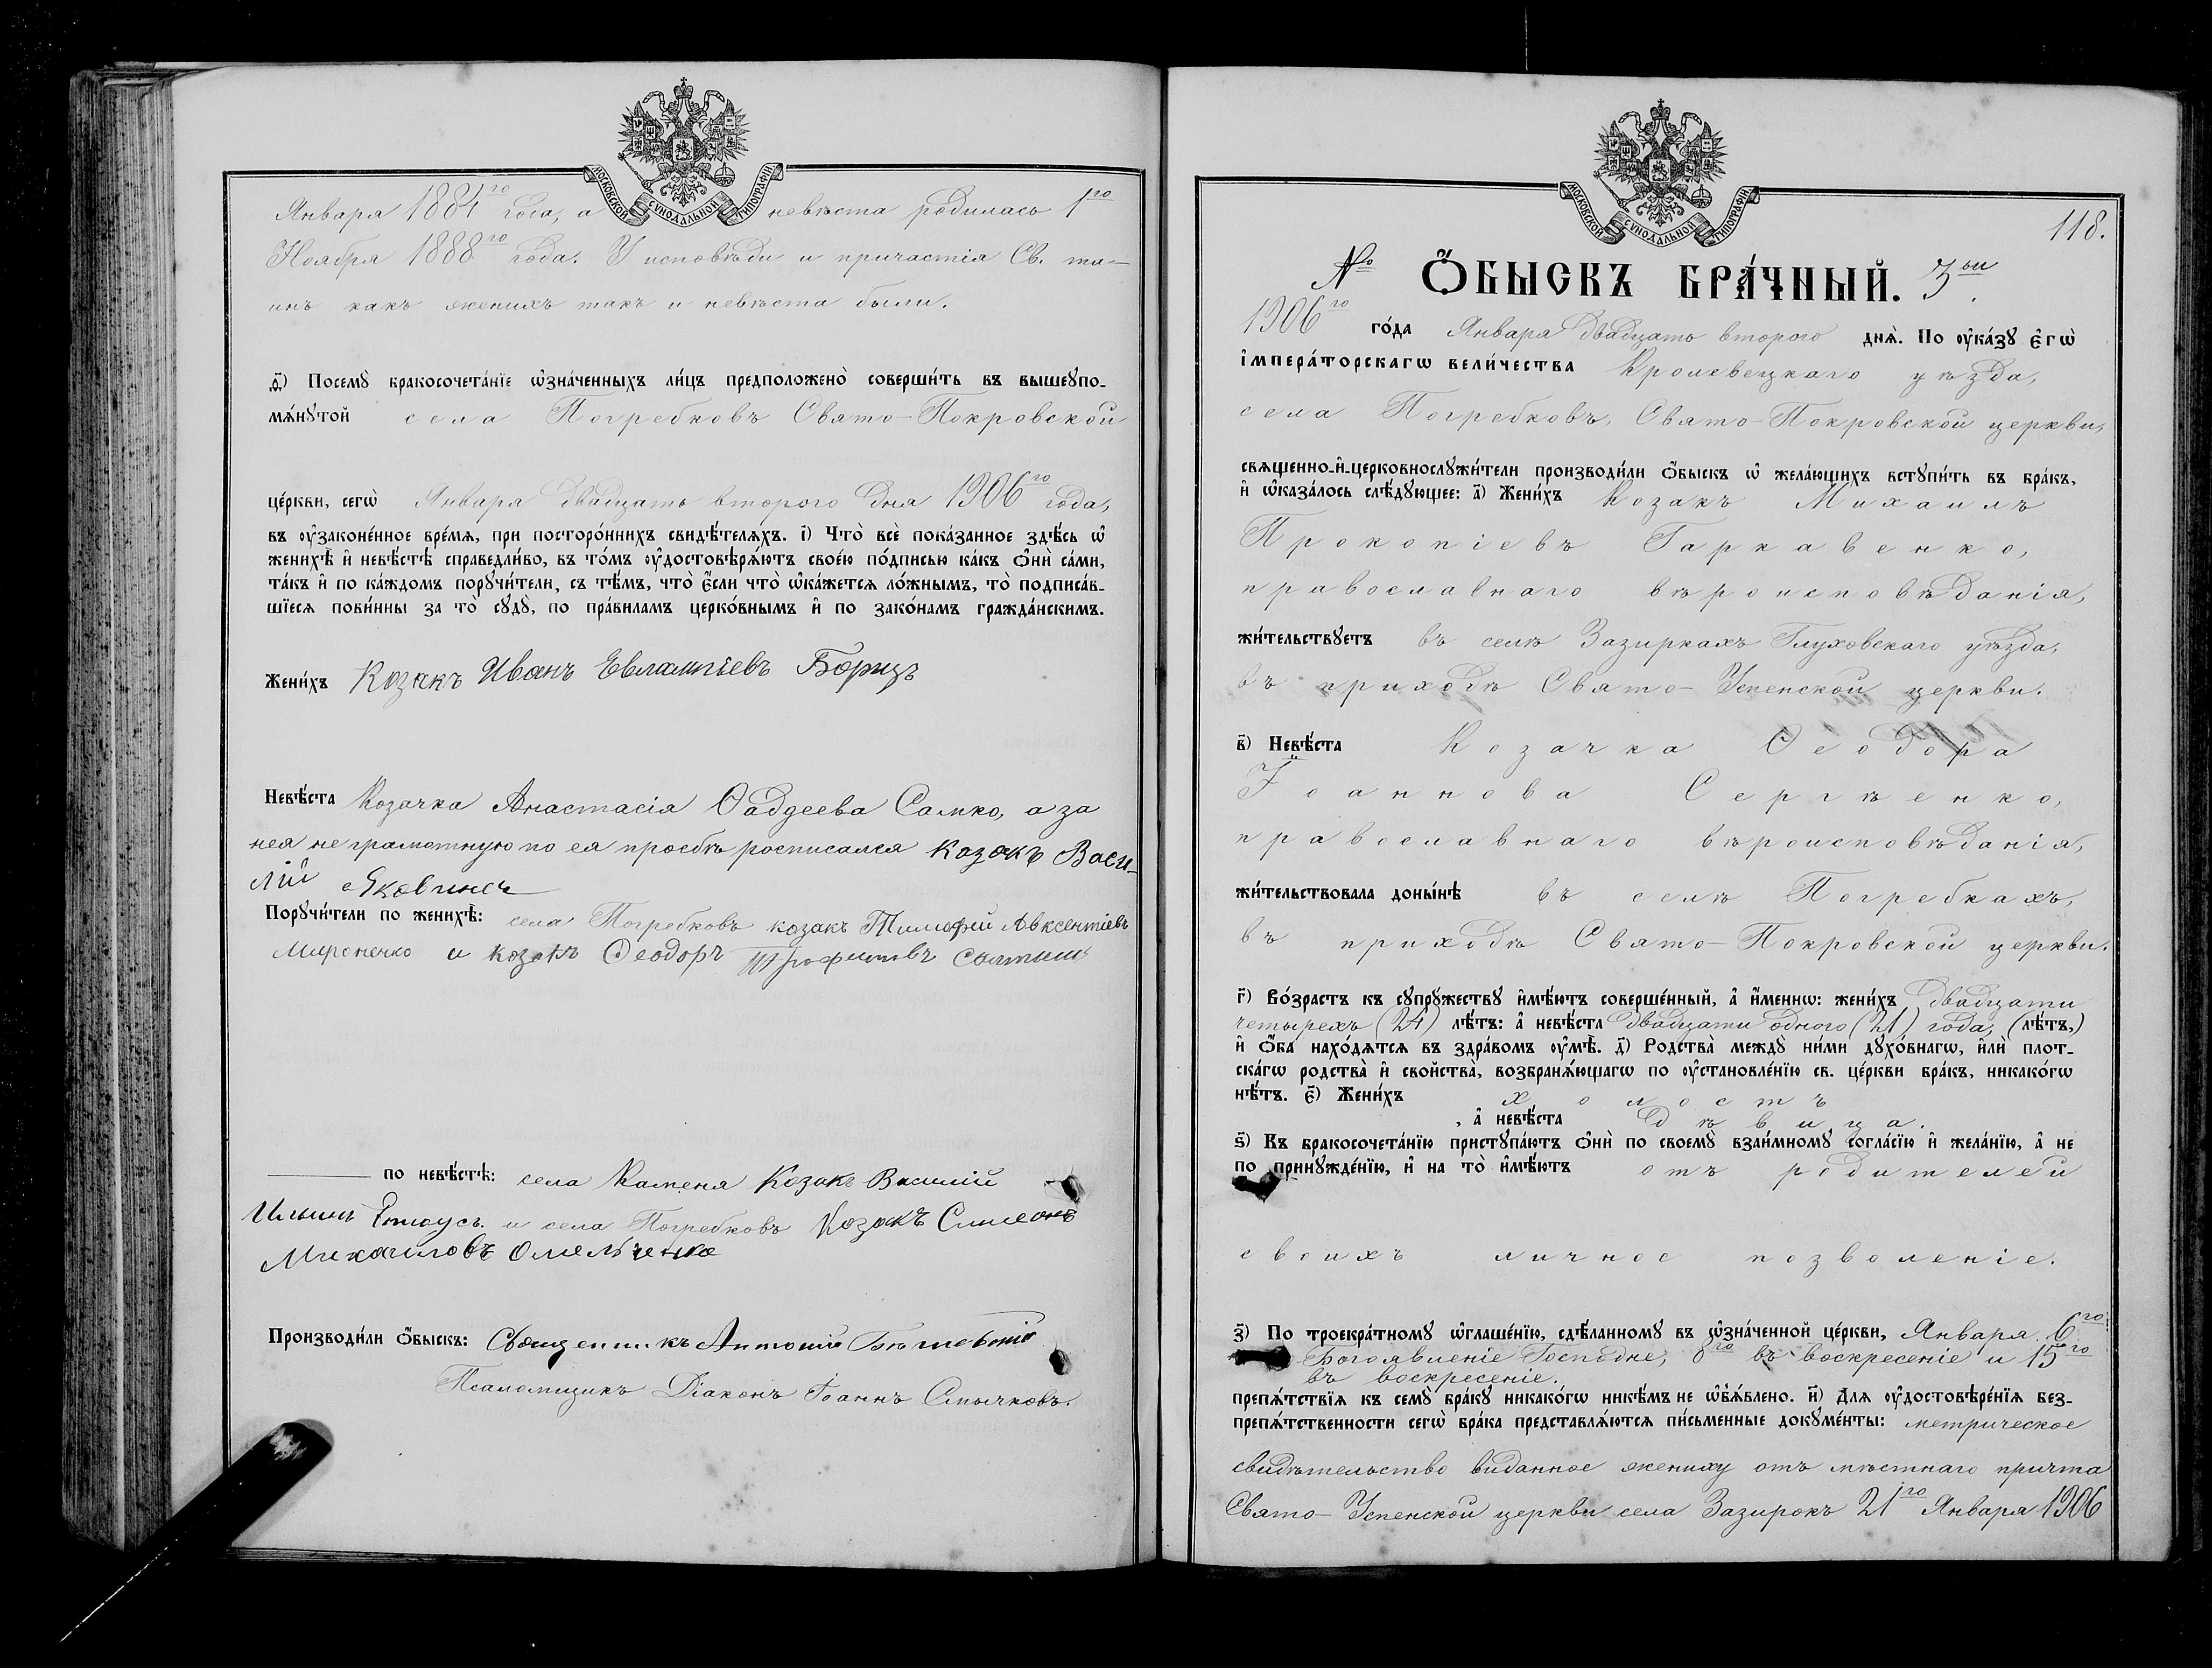 МОСКОВСКОЙ СѴНОДАЛЬНОЙ ТИПОГРАФІИ
Января 1884го года, а невѣста родилась 1го
Ноября 1888го года. У исповѣди и причастія Св. та-
инъ какъ женихъ такъ и невѣста были.
Ѳ҃) Посемꙋ бракосочета́нїе ѡ҆зна́ченныхъ ли́цъ предположено̀ соверши́ть въ вышеꙋпо-
мѧ́нꙋтой села Погребковъ Свято-Покровской
це́ркви, сегѡ̀ Января двадцать второго дня 1906го года,
въ ᲂу҆законе́нное вре́мѧ, при посторо́ннихъ свидѣ́телѧхъ. і҃) Что̀ всѐ пока́занное здѣ́сь ѡ҆
женихѣ̀ и҆ невѣ́стѣ справедли́во, въ то́мъ ᲂу҆достовѣрѧ́ютъ свое́ю по́дписью ка́къ ѻ҆нѝ са́ми,
та́къ и҆ по ка́ждомъ порꙋчи́тели, съ тѣ́мъ, что̀ є҆́сли что̀ ѡ҆ка́жетсѧ ло́жнымъ, то̀ подписа́в-
шїесѧ пови́нны за то̀ сꙋдꙋ̀, по пра́виламъ церко́внымъ и҆ по зако́намъ гражда́нскимъ.
Жени́хъ Козакъ Иванъ Евлампіевъ Борицъ
Невѣ́ста Козачка Анастасія Ѳаддеева Самко, а за
нея не грамотную по ея просбѣ росписался козакъ Васи-
лій Яковинец
Порꙋчи́тели по женихѣ̀: села Погребковъ козакъ Тимофій Авксентіевъ
Мироненко и козакъ Ѳеодоръ Трофимовъ
по невѣ́стѣ: села Каменя Козакъ Василій
Ильинъ и села Погребковъ Козакъ Симеонъ
Михаиловъ Омельченко
Производи́ли ѻ҆́быскъ: Священникъ Антоній
Псаломщикъ Діаконъ Іоаннъ Смычковъ.
МОСКОВСКОЙ СѴНОДАЛЬНОЙ ТИПОГРАФІИ
118.
№ Ѻ҆́БЫСКЪ БРА́ЧНЫЙ. 3ьи.
1906го го́да Января двадцать второго днѧ̀. По ᲂу҆ка́зꙋ є҆гѡ̀
і҆мпера́торскагѡ вели́чества Кролевецкаго уѣзда,
села Погребковъ, Свято-Покровской церкви,
свѧщенно-и҆-церковнослꙋжи́тели производи́ли ѻ҆́быскъ ѡ҆ жела́ющихъ встꙋпи́ть въ бра́къ,
и҆ ѡ҆каза́лось слѣ́дꙋющее: а҃) Жени́хъ Козакъ Михаилъ
Прокопіевъ Гаркавенко,
православнаго вѣроисповѣданія,
жи́тельствꙋетъ въ селѣ Зазиркахъ Глуховскаго уѣзда,
въ приходѣ Свято-Успенской церкви.
в҃) Невѣ́ста Козачка Ѳеодора
Іоаннова Сергѣенко,
православнаго вѣроисповѣданія,
жи́тельствовала доны́нѣ въ селѣ Погребкахъ,
въ приходѣ Свято-Покровской церкви.
г҃) Во́зрастъ къ сꙋпрꙋ́жествꙋ и҆мѣ́ютъ соверше́нный, а҆ и҆́меннѡ: жени́хъ двадцати
четырехъ (24) лѣ́тъ: а҆ невѣ́ста двадцати одного (21) года, (лѣ́тъ,)
и҆ ѻ҆́ба нахо́дѧтсѧ въ здра́вомъ ᲂу҆мѣ̀. д҃) Родства̀ междꙋ̀ ни́ми дꙋхо́внагѡ, и҆лѝ плот-
ска́гѡ родства̀ и҆ сво́йства, возбранѧ́ющагѡ по ᲂу҆становле́нїю св. це́ркви бра́къ, никако́гѡ
нѣ́тъ. є҃) Жени́хъ холостъ
, а҆ невѣ́ста дѣвица.
ѕ҃) Къ бракосочета́нїю пристꙋпа́ютъ ѻ҆нѝ по своемꙋ̀ взаи́мномꙋ согла́сїю и҆ жела́нїю, а҆ не
по принꙋжде́нїю, и҆ на то̀ и҆мѣ́ютъ отъ родителей
своихъ личное позволеніе.
з҃) По троекра́тномꙋ ѡ҆глаше́нїю, сдѣ́ланномꙋ въ ѡ҆зна́ченной це́ркви, Января 6го
Богоявленіе Господне, 8го въ воскресеніе и 15го
въ воскресеніе.
препѧ́тствїѧ къ семꙋ̀ бра́кꙋ никако́гѡ никѣ́мъ не ѡ҆б̾ѧ́влено. и҃) Длѧ ᲂу҆достовѣре́нїѧ без-
препѧ́тственности сегѡ̀ бра́ка представлѧ́ютсѧ пи́сьменные докꙋме́нты: метрическое
свидѣтельство виданное жениху отъ мѣстнаго причта
Свято-Успенской церкви села Зазирокъ 21го Января 1906